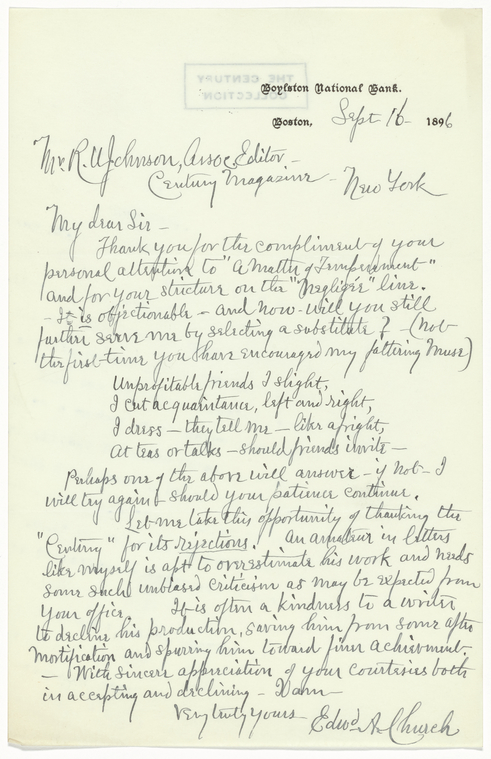 THE CENTURY
COLLECTION
Boylston National Bank.
Boston, Sept 16 - 1896
Mr. R. U. Johnson, Assoc. Editor -
Century Magazine - New York
My dear Sir -
Thank you for the compliment of your
personal attention to "A Matter of Temperament"
and for your stricture on the "Negligée" line.
- It is objectionable - and now - will you still
further serve me by selecting a substitute? - (Not
the first time you have encouraged my faltering Muse)
Unprofitable friends I slight,
I cut acquaintance, left and right,
I dress - they tell me - like a fright,
At teas or talks - should friends invite -
Perhaps one of the above will answer - if not - I
will try again should your patience continue.
Let me take this opportunity of thanking the
"Century" for its rejections. An amateur in letters
like myself is apt to overestimate his work and needs
some such unbiased criticism as may be expected from
your office. It is often a kindness to a writer
to decline his production, saving him from some after
mortification and spurring him toward finer achievement.
- With sincere appreciation of your courtesies both
in accepting and declining - I am -
Very truly yours -
Edwd A. Church